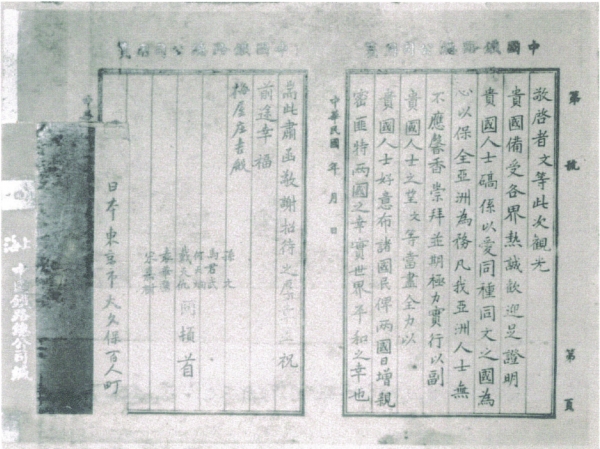 中國鐵路總公司用箋
第 號
第 頁
敬啓者文等此次觀光
貴國備受各界熱誠歡迎足證明
貴國人士確係以愛同種同文之國為
心以保全亞洲為務凡我亞洲人士無
不應馨香崇拜並期極力實行以副
貴國人士之望文等當盡全力以
貴國人士好意布諸國民俾兩國日增親
密匪特兩國之幸實世界平和之幸也
中華民國 年 月 日
中國鐵路總公司用箋
耑此肅函敬謝招待之厚並祝
前途幸福
梅屋庄吉殿
孫文
馬君武
何天炯
戴天仇
袁華選
宋嘉樹
同頓首
日本東京市大久保百人町
上海
中國鐵路總公司緘